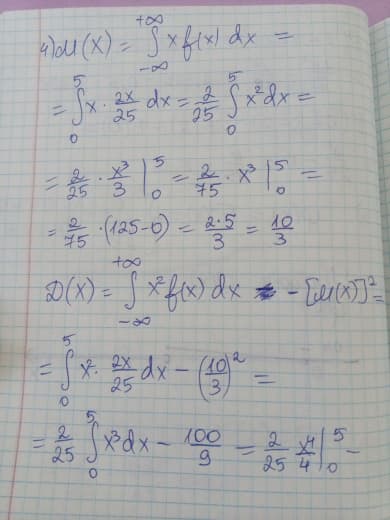 4) M(X) = ∫_{-∞}^{+∞} x f(x) dx =
= ∫_0^5 x · 2x/25 dx = 2/25 ∫_0^5 x² dx =
= 2/25 · x³/3 |_0^5 = 2/75 · x³ |_0^5 =
= 2/75 · (125-0) = 2·5/3 = 10/3
D(X) = ∫_{-∞}^{+∞} x² f(x) dx - [M(X)]² =
= ∫_0^5 x² · 2x/25 dx - (10/3)² =
= 2/25 ∫_0^5 x³ dx - 100/9 = 2/25 x⁴/4 |_0^5 -